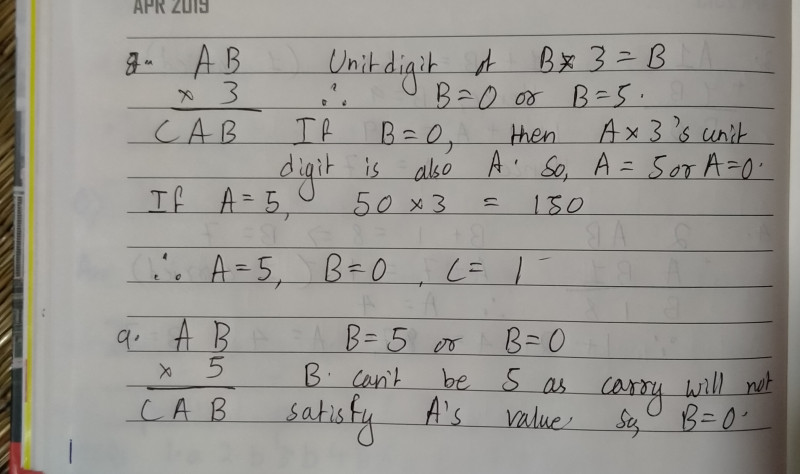 APR 2019
8. A B Unit digit of B x 3 = B
x 3 ∴ B = 0 or B = 5.
C A B If B = 0, then A x 3's unit
digit is also A. So, A = 5 or A = 0.
If A = 5, 50 x 3 = 150
∴ A = 5, B = 0, C = 1
9. A B B = 5 or B = 0
x 5 B. can't be 5 as carry will not
C A B satisfy A's value. So, B = 0.